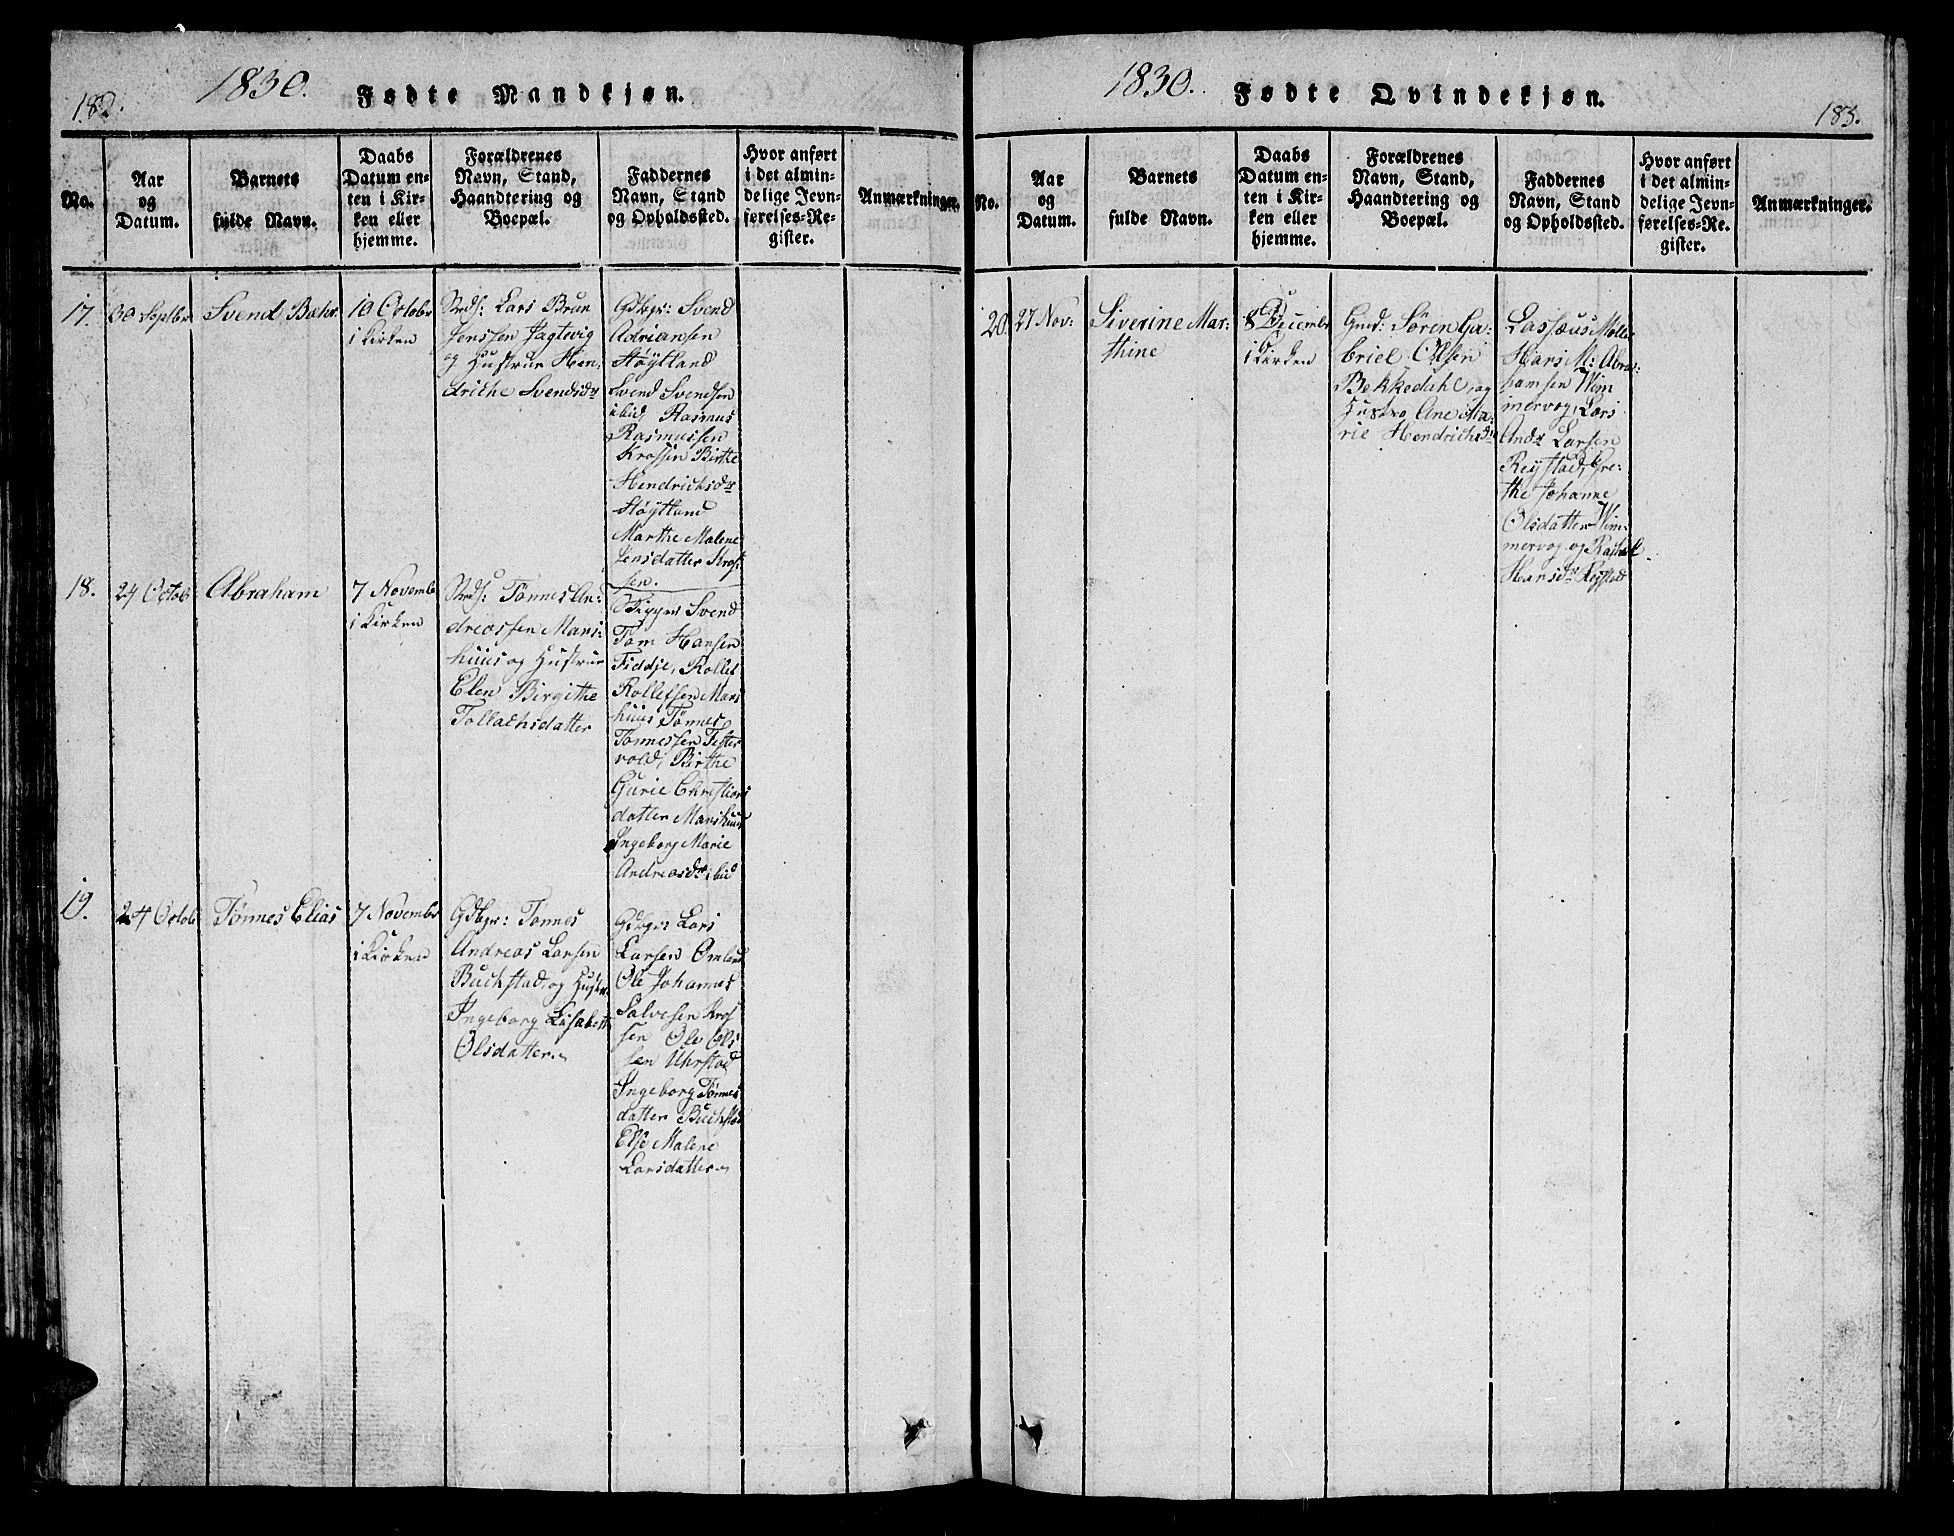 182.
1830. Fødte Mandkjøn.
No.
Aar
og
Datum.
Barnets
fulde Navn.
Daabs
Datum en-
ten i Kir-
ken eller
hjemme.
Forældrenes
Navn, Stand,
Haandtering og
Boepæl.
Faddernes
Navn, Stand
og Opholdssted.
Hvor anført
i det almin-
delige Jevn-
førelses-Re-
gister.
Anmærkninger.
17.
30 Septbr
Svend Bæhr
10 Octobr
i Kirken
Strds: Lars Brun
Jenssen Jagtevig
og Hustrue Hen-
driche Svendsdr
Gdbgr: Svend
Adriansen
Støytland
Svend Svendsen
ibid, Rasmus
Rasmussen
Krossen Birthe
Hendrichsdr
Støytland
Marthe Malene
Jensdatter Kros-
sen.
18.
24 Octob
Abraham
7 Novembr
i Kirken
Strds: Tønnes An-
dreassen Mans-
huus og Hustrue
Elen Birgithe
Tollachsdatter
Svend
Tom Hansen
Fiddje, Rollef
Rollefsen Mans
huus Tønnes
Tønnessen Tester
vold, Birthe
Gurie Christians
datter Manshuus
Ingeborg Marie
Andreasdr ibid
19.
24 Octob
Tønnes Elias
7 Novembr
i Kirken
Gdbgr: Tønnes
Andreas Larsen
Buchstad, og Hustr.
Ingeborg Lisabeth
Olsdatter.
Gdbgr Lars
Larsen Omland
Ole Johannes
Salvesen Kros
sen Ole Ols
sen Uhrstad
Ingeborg Tønnes
datter Buchstad
Else Malene
Larsdatter
1830. Fødte Qvindekjøn.
183.
No.
Aar
og
Datum.
Barnets
fulde Navn.
Daabs
Datum en-
ten i Kir-
ken eller
hjemme.
Forældrenes
Navn, Stand,
Haandtering og
Boepæl.
Faddernes
Navn, Stand
og Opholdssted.
Hvor anført
i det almin-
delige Jevn-
førelses-Re-
gister.
Anmærkninger.
20.
27 Nov:
Siverine Mar-
thine
8 Decembr
i Kirken
Gmd: Søren Ga-
briel Olsen
Bekkedahl, og
Hustro Ane Ma-
rie Hendrichsdr
Lassæus Møller
Hans M: Abra-
hamsen Wim
mervog, Lars
Andr Larsen
Reystad, Gre-
the Johanne
Olsdatter Wim-
mervog og
Hansdr Reystad